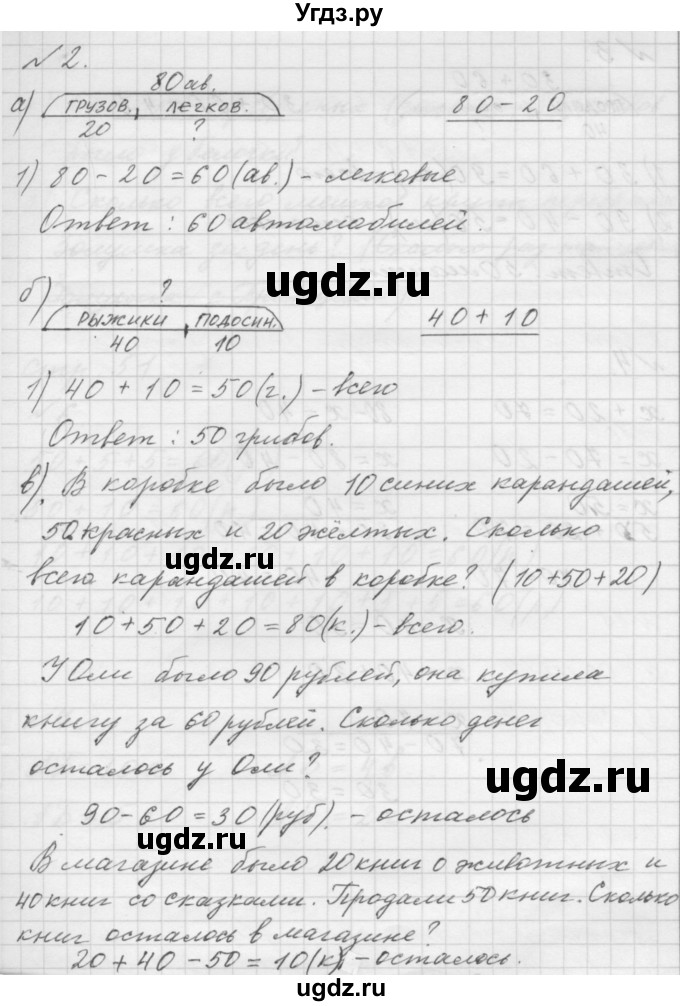 Угдз.ру
№2.
80 ав.
а) грузов. легков. 80 - 20
20 ?
1) 80 - 20 = 60 (ав.) - легковые
Ответ : 60 автомобилей.
ugdz.ru
ugdz.ru
?
б) рыжики подосин. 40 + 10
40 10
1) 40 + 10 = 50 (г.) - всего
Ответ : 50 грибов.
в). В коробке было 10 синих карандашей,
50 красных и 20 жёлтых. Сколько
ugdz.ru
ugdz.ru
всего карандашей в коробке? (10+50+20)
10+50+20 = 80 (к.) - всего.
У Оли было 90 рублей, она купила
книгу за 60 рублей. Сколько денег
осталось у Оли?
ugdz.ru
90-60 = 30 (руб). - осталось
ugdz.ru
В магазине было 20 книг о животных и
40 книг со сказками. Продали 50 книг. Сколько
книг осталось в магазине?
20 + 40 - 50 = 10 (к) - осталось.
ugdz.ru